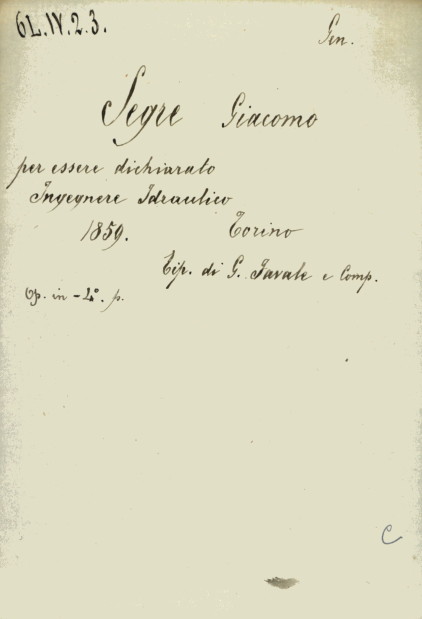 6L.IV.2.3.
Gen.
Segre Giacomo
per essere dichiarato
Ingegnere Idraulico
1859. Torino
Tip. di G. Favale e Comp.
Op. in-4º. p.
C